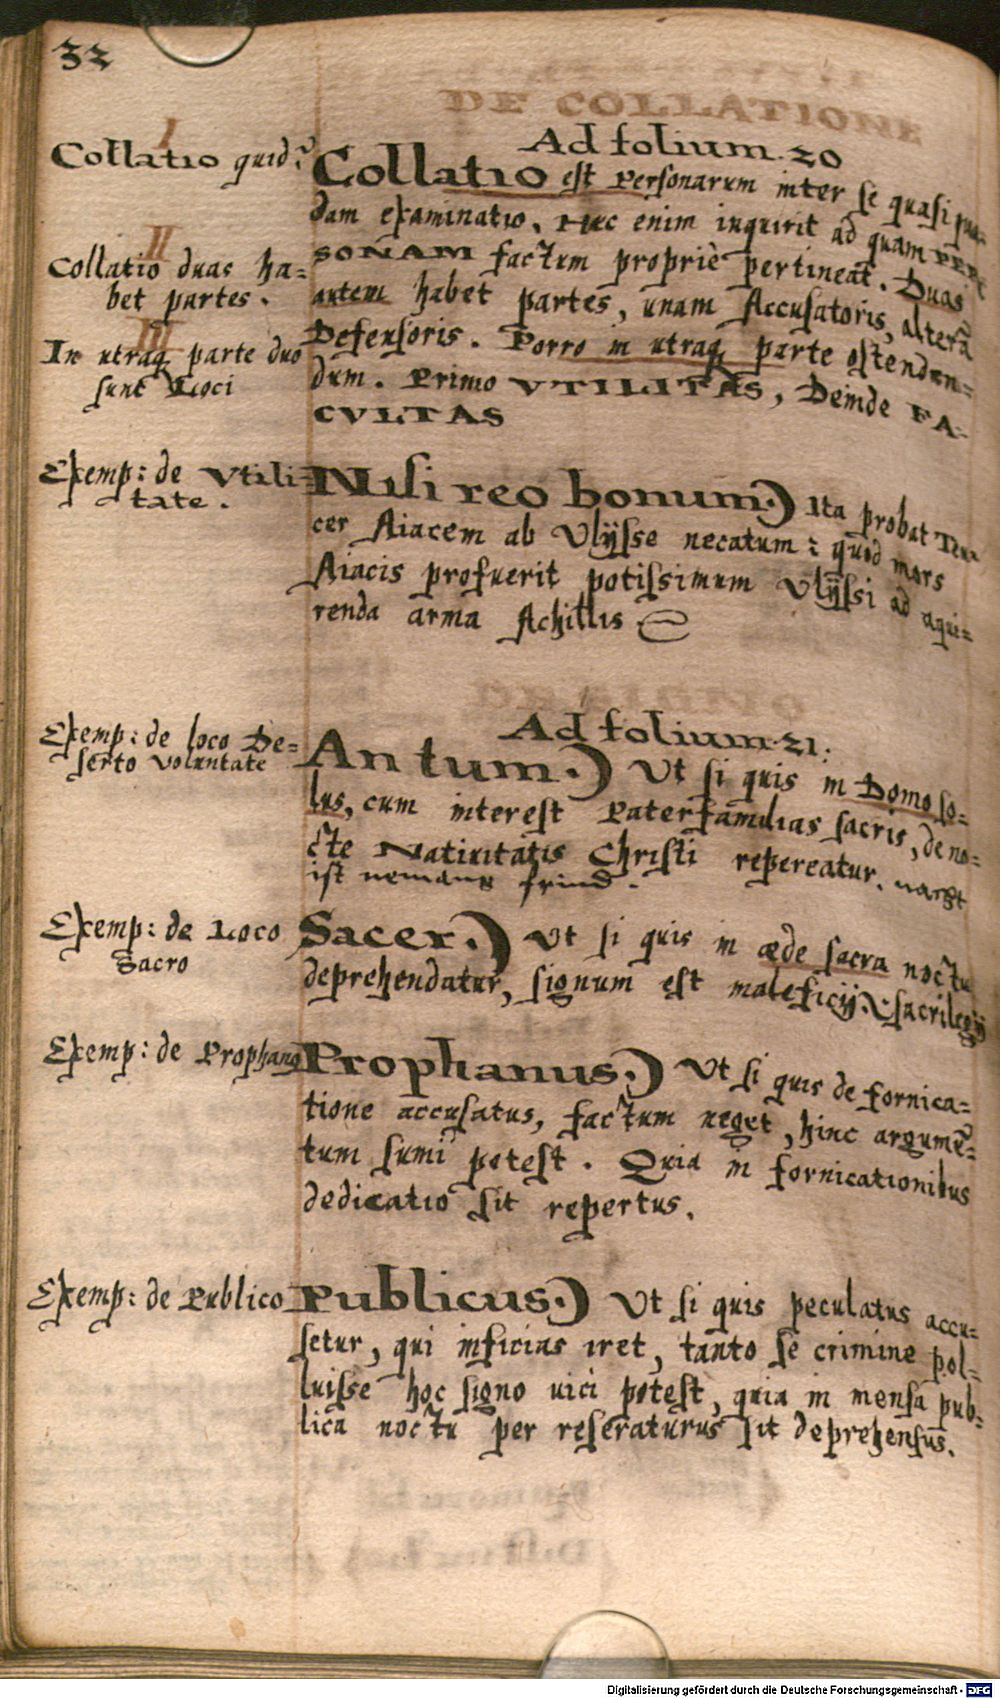 32
DE COLLATIONE
Ad folium. 20
I
Collatio quid?
Collatio est Personarum inter se quasi quæ-
dam examinatio. Huc enim inquirit ad quam PER-
SONAM factum propriè pertineat. Duas
II
Collatio duas ha=
bet partes.
autem habet partes, unam Accusatoris, alterā
Defensoris. Porro in utraq parte ostenden=
III
In utraq parte duo
sunt Loci
dum. Primo VTILITAS, Deinde FA-
CVLTAS
Exemp: de Vtili=
tate.
Nisi reo bonum.) Ita probat Teu-
cer Aiacem ab Vlÿsse necatum: quod mors
Aiacis profuerit potissimum Vlÿssi ad aqui=
renda arma Achillis
Ad folium. 21.
Exemp: de loco De=
serto voluntate
Antum.) Vt si quis in Domo so=
lus, cum interest Paterfamilias sacris, de no=
cte Natiuitatis Christi repereatur.
ist niemans
Exemp: de Loco
Sacro
Sacer.) Vt si quis in æde sacra noctu
deprehendatur, signum est maleficij & sacrilegij
Exemp: de Prophano
Prophanus.) Vt si quis de fornica=
tione accusatus, factum neget, hinc argumē=
tum sumi potest. Quia in fornicationibus
dedicatio sit repertus.
Exemp: de Publico
Publicus.) Vt si quis peculatus accu=
setur, qui inficias iret, tanto se crimine pol=
luisse hoc signo uici potest, quia in mensa pub=
lica noctu per reseraturus sit deprehensus.
Digitalisierung gefördert durch die Deutsche Forschungsgemeinschaft - DFG